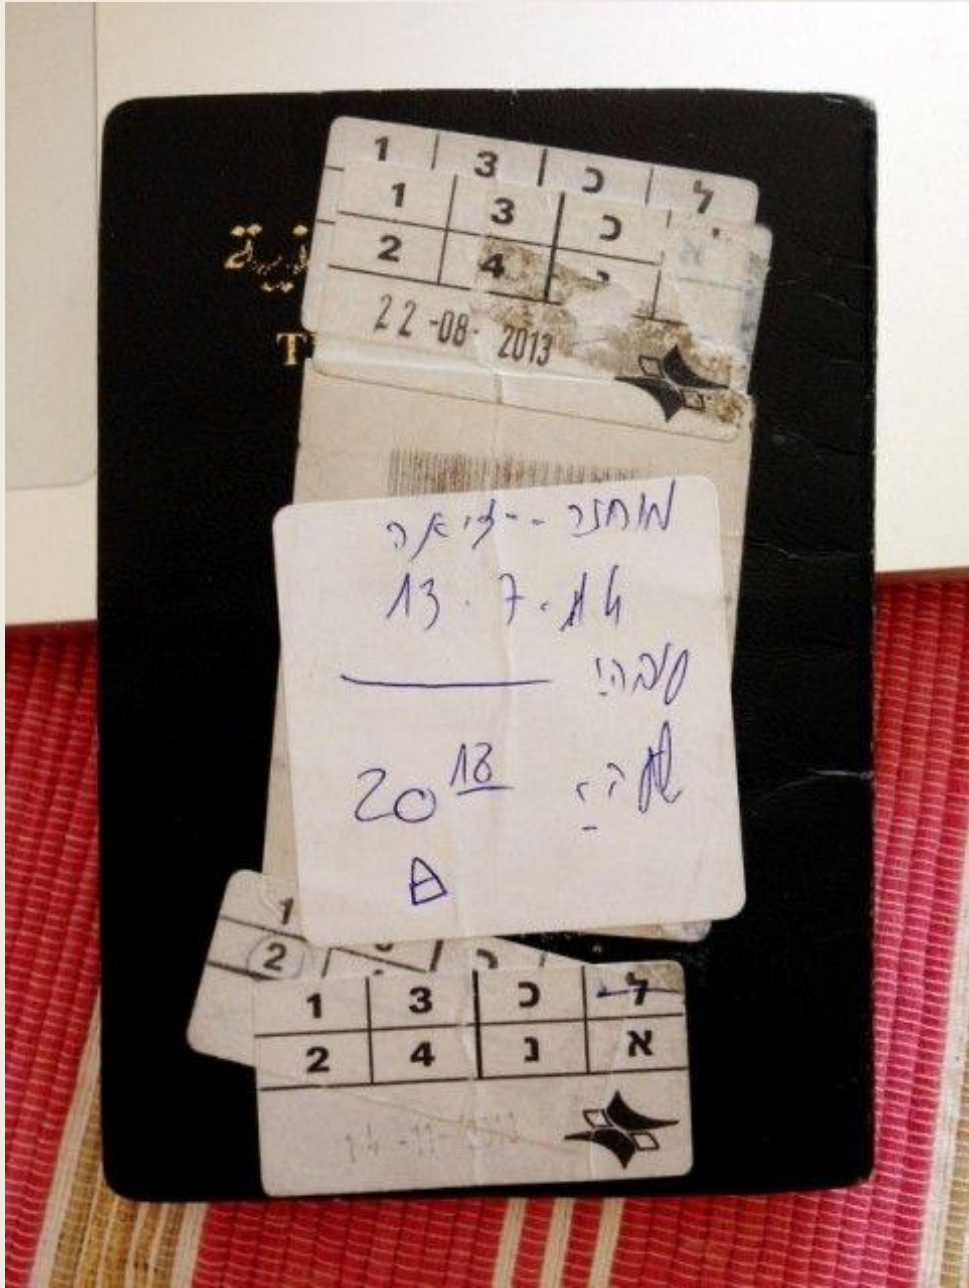 1 3 כ ל
1 3 כ
2 4
22-08-2013
T
מוחזר -- יציאה
13.7.14
סיבה:
שעה:
20 18
1
2
1 3 כ ל
2 4 נ א
14-11-